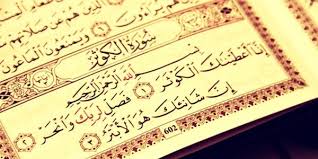 يُرَآءُونَ ٦ وَيَمْنَعُونَ ٱلْمَاعُونَ
سُورَةُ الكَوْثَرِ
بِسْمِ ٱللَّهِ ٱلرَّحْمَٰنِ ٱلرَّحِيمِ
إِنَّآ أَعْطَيْنَٰكَ ٱلْكَوْثَرَ ١ فَصَلِّ لِرَبِّكَ وَٱنْحَرْ ٢
إِنَّ شَانِئَكَ هُوَ ٱلْأَبْتَرُ ٣
602